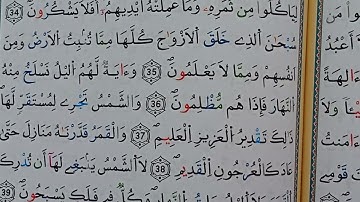 لِيَاكُلُوا۟ مِن ثَمَرِهِۦ وَمَا عَمِلَتْهُ أَيْدِيهِمُۥٓ أَفَلَا يَشْكُرُونَ ٣٤
سُبْحَٰنَ ٱلَّذِى خَلَقَ ٱلْأَزْوَٰجَ كُلَّهَا مِمَّا تُنۢبِتُ ٱلْأَرْضُ وَمِنَ
اَنفُسِهِمْ وَمِمَّا لَا يَعْلَمُونَ ٣٥ وَءَايَةٌ لَّهُمُ ٱلَّيْلُ نَسْلَخُ مِنْهُ
ٱلنَّهَارَ فَإِذَا هُم مُّظْلِمُونَ ٣٦ وَٱلشَّمْسُ تَجْرِى لِمُسْتَقَرٍّ لَّهَا
ذَٰلِكَ تَقْدِيرُ ٱلْعَزِيزِ ٱلْعَلِيمِ ٣٧ وَٱلْقَمَرُ قَدَّرْنَٰهُ مَنَازِلَ حَتَّىٰ
عَادَ كَٱلْعُرْجُونِ ٱلْقَدِيمِ ٣٨ لَا ٱلشَّمْسُ يَنۢبَغِى لَهَآ أَن تُدْرِكَ
فِى فَلَكٍ يَسْبَحُونَ ٣٩
أَعْبُدُ
ءَالِهَةً
ءَامَنتُ
قَوْمِى